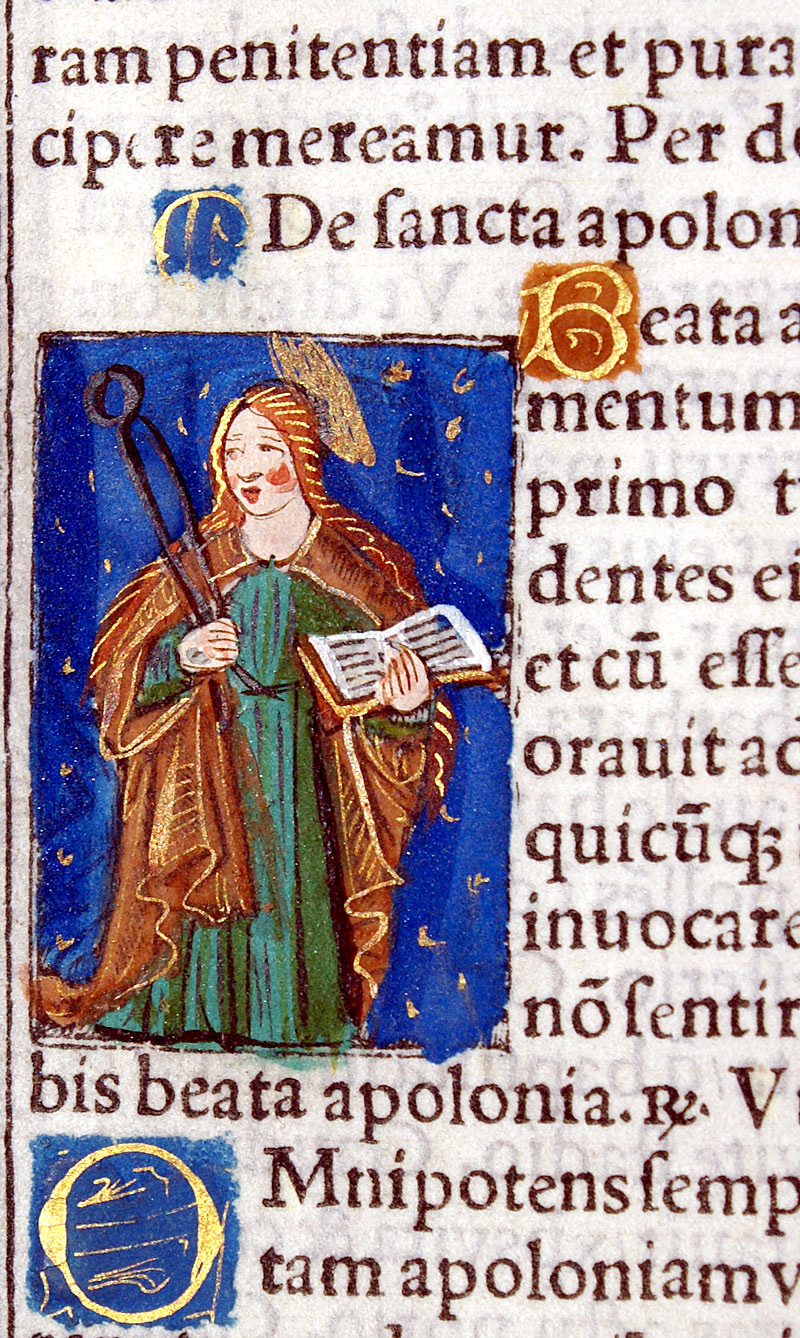 ram penitentiam et pura
cipere mereamur. Per
De ſancta apolon
Beata a
mentum
primo
dentes ei
et cū eſſe
orauit ad
quicūqꝫ
inuocare
nō ſentir
bis beata apolonia. ℞. V
OMnipotens ſemp
tam apoloniam v